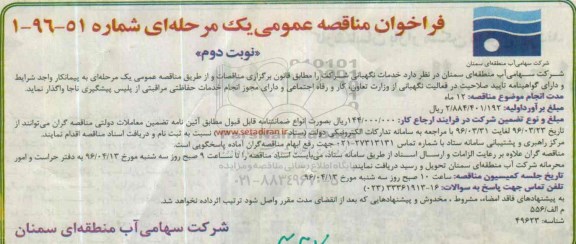 فراخوان مناقصه عمومی یک مرحله‌ای شماره ۵۱-۹۶-۱
«نوبت دوم»
شرکت سهامی آب منطقه‌ای سمنان
شرکت سهامی آب منطقه‌ای سمنان در نظر دارد خدمات نگهبانی شرکت را مطابق قانون برگزاری مناقصات و از طریق مناقصه عمومی یک مرحله‌ای به پیمانکار واجد شرایط
و دارای گواهینامه تایید صلاحیت در فعالیت نگهبانی از وزارت تعاون، کار و رفاه اجتماعی و دارای مجوز انجام خدمات حفاظتی مراقبتی از پلیس پیشگیری ناجا واگذار نماید.
مدت انجام موضوع مناقصه: ۱۲ ماه
مبلغ برآورد اولیه: ۲/۸۸۴/۴۰۱/۱۹۲ ریال
مبلغ و نوع تضمین شرکت در فرآیند ارجاع کار: ۱۴۴/۰۰۰/۰۰۰ ریال بصورت انواع ضمانتنامه قابل قبول مطابق آئین نامه تضمین معاملات دولتی مناقصه گران می‌توانند از
تاریخ ۹۶/۰۳/۲۳ لغایت ۹۶/۰۳/۳۱ با مراجعه به سامانه تدارکات الکترونیکی دولت (ستاد) www.setadiran.ir نسبت به ثبت نام و دریافت اسناد مناقصه اقدام نمایند.
مرکز راهبری و پشتیبانی سامانه ستاد با شماره تماس ۲۷۳۱۳۱۳۱-۰۲۱ جهت رفع ابهام مناقصه‌گران آماده پاسخگویی است.
مناقصه گران علاوه بر رعایت الزامات و ارسال اسناد از طریق سامانه ستاد، می‌بایست اسناد مناقصه را تا ساعت ۹ صبح روز سه شنبه مورخ ۹۶/۰۴/۱۳ به دفتر حراست و امور
محرمانه شرکت آب منطقه‌ای سمنان تحویل و رسید دریافت نمایند.
تاریخ جلسه کمیسیون مناقصه: ساعت ۱۰ صبح روز سه شنبه مورخ ۹۶/۰۴/۱۳
تلفن تماس جهت پاسخ به سوالات: ۱۶-۳۳۳۶۱۹۱۳ (۰۲۳)
به پیشنهادهای فاقد امضاء، مشروط، مخدوش و پیشنهادهایی که بعد از انقضای مدت مقرر واصل شود ترتیب اثر داده نخواهد شد.
م الف/۵۵۶
شناسه: ۴۹۶۲۳
شرکت سهامی آب منطقه‌ای سمنان